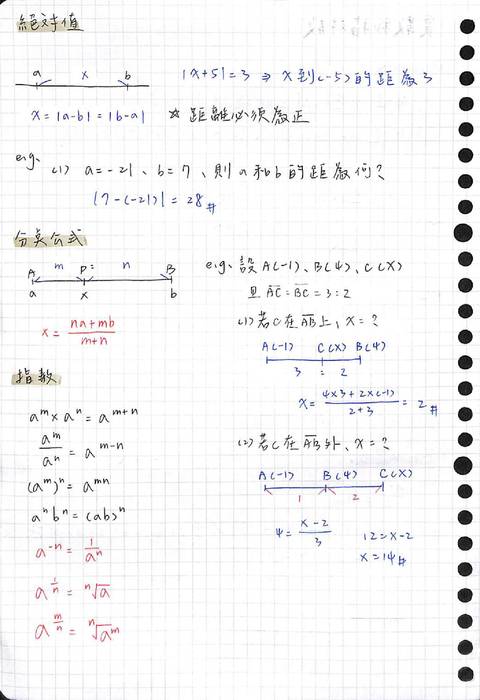 絕對值
a x b
|x+5|=3 ⇒ x到(-5)的距為3
x=|a-b|=|b-a| ☆距離必須為正
e.g.
(1) a=-21、b=7、則a和b的距為何？
|7-(-21)|=28#
分點公式
m P: n
A B
a x b
x = (na+mb)/(m+n)
e.g. 設A(-1)、B(4)、C(x)
且 AC̅:BC̅=3:2
(1) 若C在A̅B̅上，x=？
A(-1) C(x) B(4)
3 : 2
x = (4x3+2x(-1))/(2+3) = 2#
(2) 若C在A̅B̅外，x=？
A(-1) B(4) C(x)
1 2
4 = (x-2)/3
12=x-2
x=14#
指數
aᵐ×aⁿ=aᵐ⁺ⁿ
aᵐ/aⁿ = aᵐ⁻ⁿ
(aᵐ)ⁿ=aᵐⁿ
aⁿbⁿ=(ab)ⁿ
a⁻ⁿ = 1/aⁿ
a^(1/n) = ⁿ√a
a^(m/n) = ⁿ√aᵐ